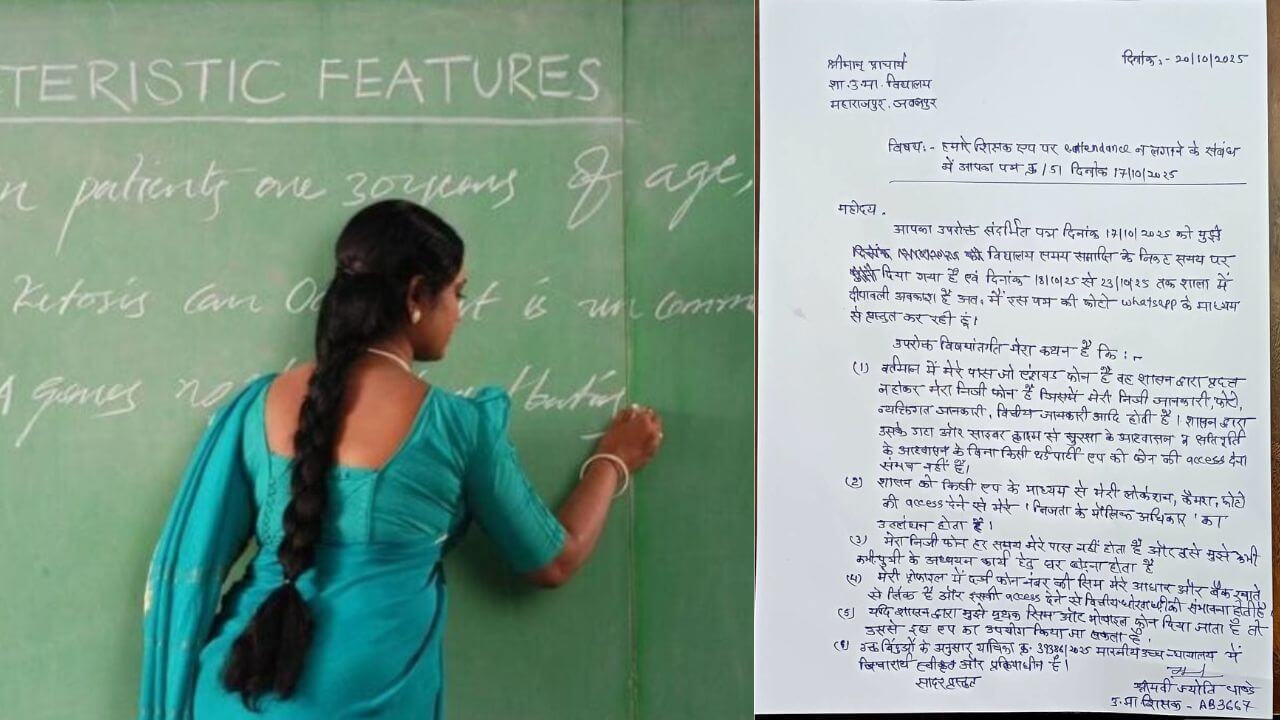 TERISTIC FEATURES
n patients one 30 years of age,
Ketosis can Oc t is un comm
A genes
buting
श्रीमान् प्राचार्य
दिनांक :- 20/10/2025
शा. उ. मा. विद्यालय
महाराजपुर, जबलपुर
विषय:- हमारे शिक्षक एप पर e attendance न लगाने के संबंध
में आपका पत्र क्र / 51 दिनांक 17/10/2025
महोदय,
आपका उपरोक्त संदर्भित पत्र दिनांक 17/10/2025 को मुझे
विद्यालय समय समाप्ति के निकट समय पर
दिया गया है एवं दिनांक 18/10/25 से 23/10/25 तक शाला में
दीपावली अवकाश है अतः मैं इस पत्र की फोटो whatsapp के माध्यम
से प्रस्तुत कर रही हूं।
उपरोक्त विषयांतर्गत मेरा कथन है कि :-
(1) वर्तमान में मेरे पास जो एंड्रायड फोन है वह शासन द्वारा प्रदत्त
न होकर मेरा निजी फोन है जिसमें मेरी निजी जानकारी, फोटो,
व्यक्तिगत जानकारी, वित्तीय जानकारी आदि होती है। शासन द्वारा
उसके डाटा और साइबर क्राइम से सुरक्षा के आश्वासन व क्षतिपूर्ति
के आश्वासन के बिना किसी थर्ड पार्टी एप को फोन की access देना
संभव नहीं है।
(2) शासन को किसी एप के माध्यम से मेरी लोकेशन, कैमरा, फोटो
की access देने से मेरे 'निजता के मौलिक अधिकार' का
उल्लंघन होता है।
(3) मेरा निजी फोन हर समय मेरे पास नहीं होता है और इसे मुझे कभी
कभी पुत्री के अध्ययन कार्य हेतु घर छोड़ना होता है
(4) मेरी प्रोफाइल में दर्ज फोन नंबर की सिम मेरे आधार और बैंक खाते
से लिंक है और इसकी access देने से वित्तीय धोखाधड़ी की संभावना होती है
(5) यदि शासन द्वारा मुझे पृथक सिम और मोबाइल फोन दिया जाता है तो
उससे इस एप का उपयोग किया जा सकता है।
(6) उक्त बिंदुओं के अनुसार याचिका क्र. 39386/2025 माननीय उच्च-न्यायालय में
विचारार्थ स्वीकृत और प्रक्रियाधीन है।
सादर प्रस्तुत
श्रीमती ज्योति पाण्डे
उ. मा शिक्षक - AB3667